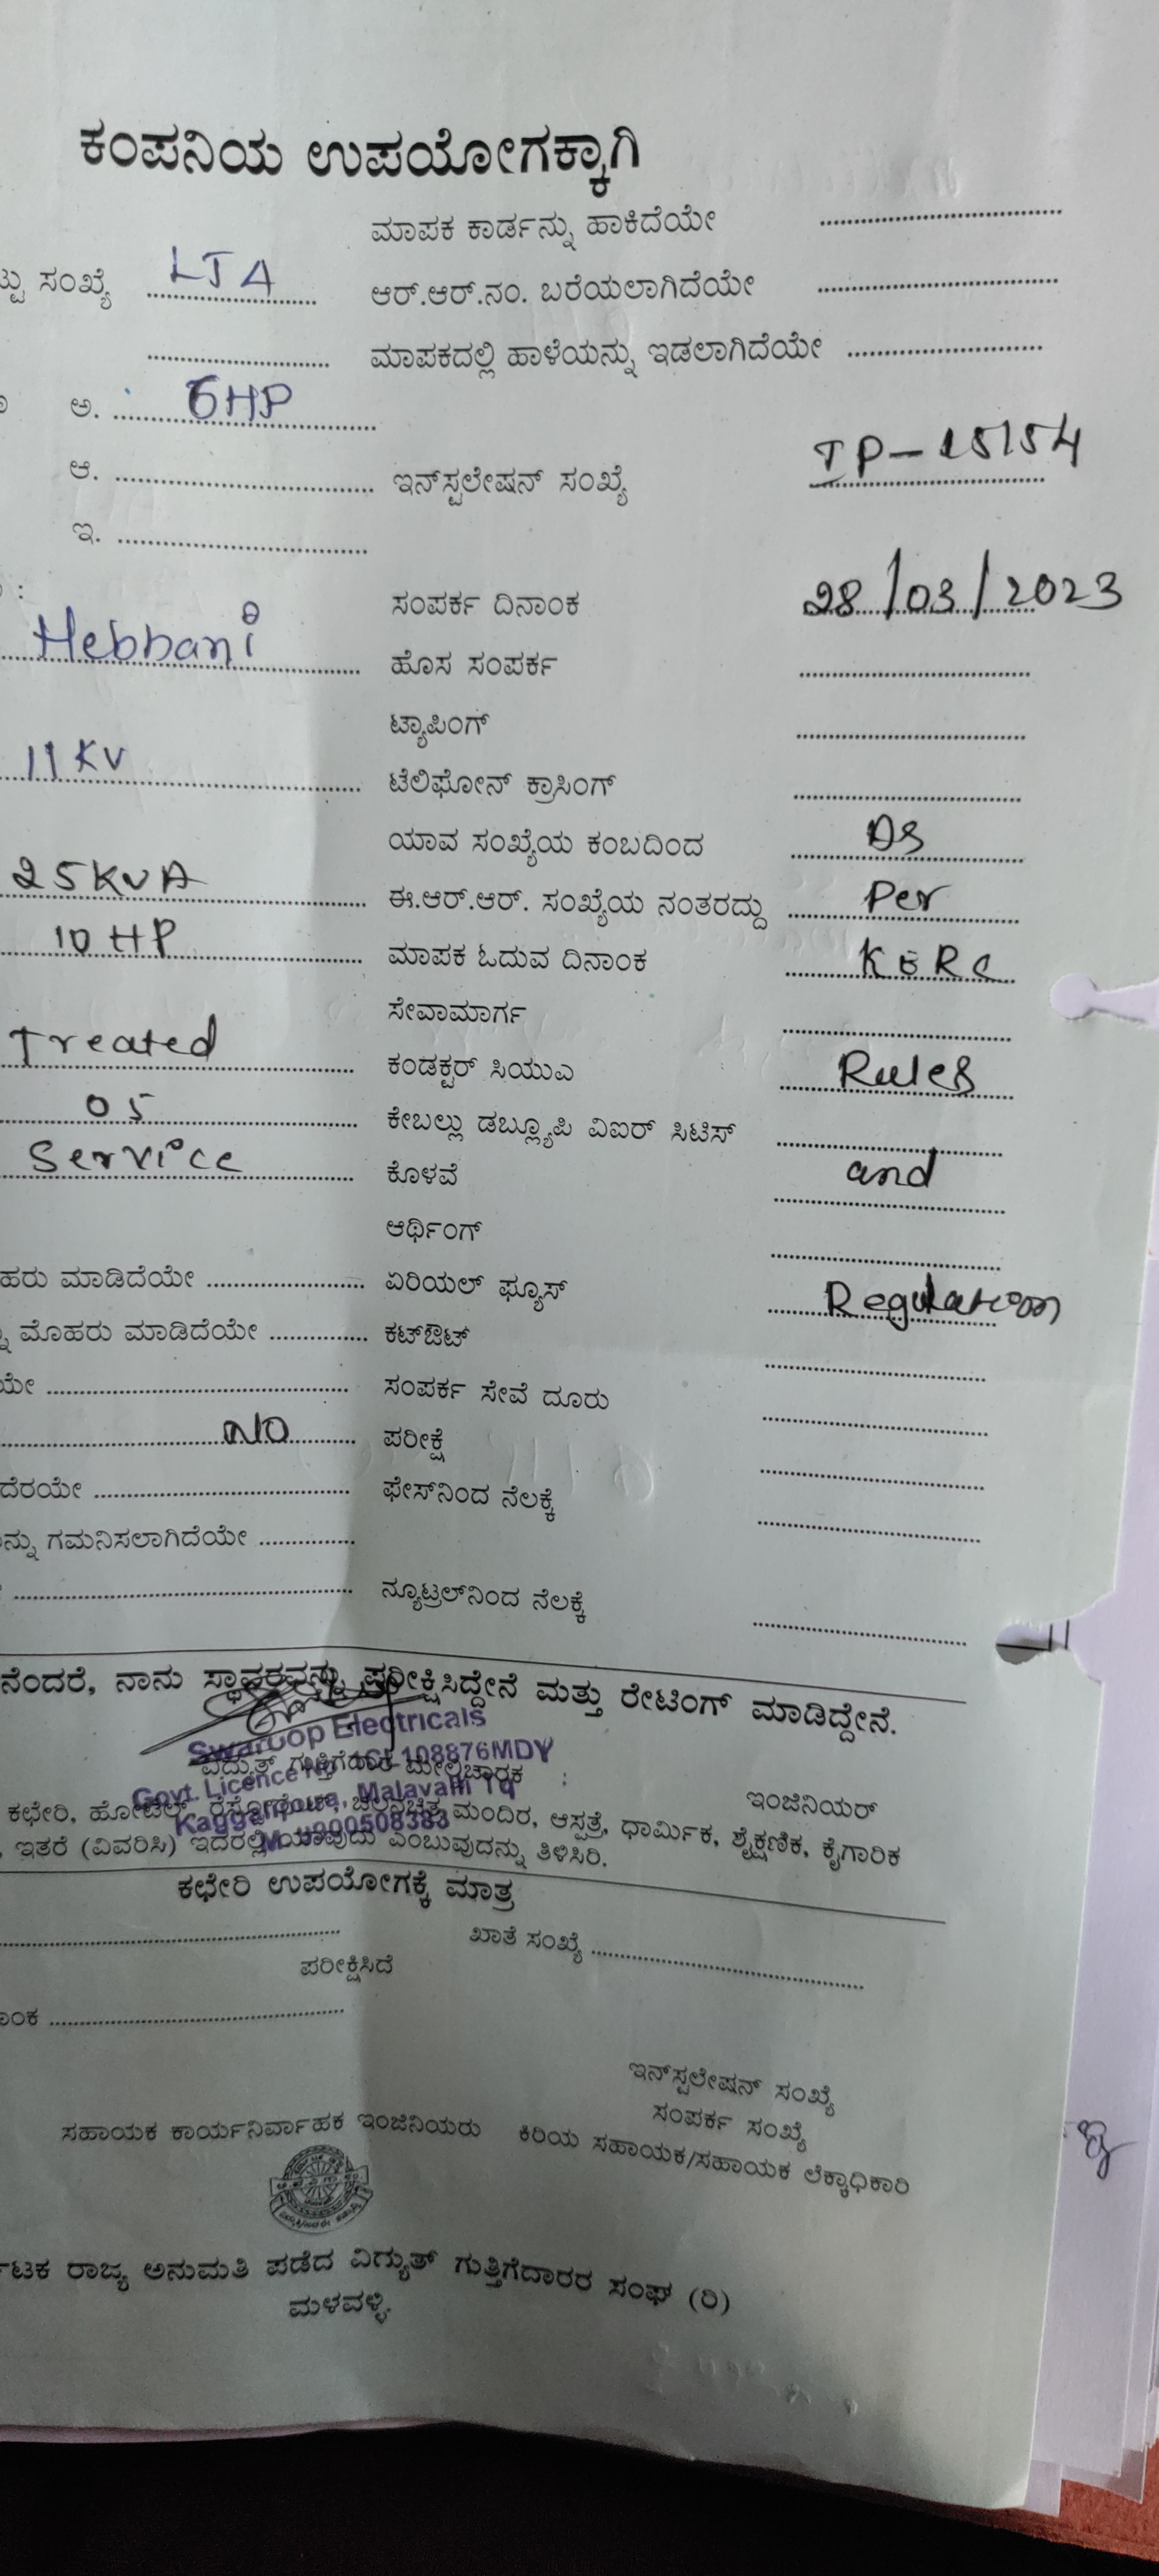 ಕಂಪನಿಯ ಉಪಯೋಗಕ್ಕಾಗಿ
ಮಾಪಕ ಕಾರ್ಡನ್ನು ಹಾಕಿದೆಯೇ
ಟ್ಟು ಸಂಖ್ಯೆ LT4 ಆರ್.ಆರ್.ನಂ. ಬರೆಯಲಾಗಿದೆಯೇ
ಮಾಪಕದಲ್ಲಿ ಹಾಳೆಯನ್ನು ಇಡಲಾಗಿದೆಯೇ
ಅ. 6HP
ಆ. ಇನ್‌ಸ್ಟಲೇಷನ್ ಸಂಖ್ಯೆ IP-15154
ಇ.
ಸಂಪರ್ಕ ದಿನಾಂಕ 28/03/2023
Hebbani ಹೊಸ ಸಂಪರ್ಕ
ಟ್ಯಾಪಿಂಗ್
11KV ಟೆಲಿಫೋನ್ ಕ್ರಾಸಿಂಗ್
ಯಾವ ಸಂಖ್ಯೆಯ ಕಂಬದಿಂದ As
25KVA ಈ.ಆರ್.ಆರ್. ಸಂಖ್ಯೆಯ ನಂತರದ್ದು Per
10 HP ಮಾಪಕ ಓದುವ ದಿನಾಂಕ KERC
ಸೇವಾಮಾರ್ಗ
Treated ಕಂಡಕ್ಟರ್ ಸಿಯುಎ Rules
05 ಕೇಬಲ್ಲು ಡಬ್ಲ್ಯೂಪಿ ವಿಐರ್ ಸಿಟಿಸ್
Service ಕೊಳವೆ and
ಆರ್ಥಿಂಗ್
ಹರು ಮಾಡಿದೆಯೇ ಏರಿಯಲ್ ಫ್ಯೂಸ್ Regulation
ಮೊಹರು ಮಾಡಿದೆಯೇ ಕಟ್‌ಔಟ್
ಯೇ ಸಂಪರ್ಕ ಸೇವೆ ದೂರು
NO ಪರೀಕ್ಷೆ
ದೆರಯೇ ಫೇಸ್‌ನಿಂದ ನೆಲಕ್ಕೆ
ನ್ನು ಗಮನಿಸಲಾಗಿದೆಯೇ
ನ್ಯೂಟ್ರಲ್‌ನಿಂದ ನೆಲಕ್ಕೆ
ನೆಂದರೆ, ನಾನು ಸ್ಥಾವರವನ್ನು ಪರೀಕ್ಷಿಸಿದ್ದೇನೆ ಮತ್ತು ರೇಟಿಂಗ್ ಮಾಡಿದ್ದೇನೆ.
Swaroop Electricals
ವಿದ್ಯುತ್ ಗುತ್ತಿಗೆದಾರ ಮೇಲ್ವಿಚಾರಕ : ಇಂಜಿನಿಯರ್
Govt. Licence No 1CL108876MDY
Kagganpura, Malavalli Tq
ಕಛೇರಿ, ಹೋಟೆಲ್, ರೆಸ್ಟೋರೆಂಟ್, ಚಲನಚಿತ್ರ ಮಂದಿರ, ಆಸ್ಪತ್ರೆ, ಧಾರ್ಮಿಕ, ಶೈಕ್ಷಣಿಕ, ಕೈಗಾರಿಕ
, ಇತರೆ (ವಿವರಿಸಿ) ಇದರಲ್ಲಿ ಯಾವುದು ಎಂಬುವುದನ್ನು ತಿಳಿಸಿರಿ.
ಕಛೇರಿ ಉಪಯೋಗಕ್ಕೆ ಮಾತ್ರ
ಖಾತೆ ಸಂಖ್ಯೆ
ಪರೀಕ್ಷಿಸಿದೆ
ಾಂಕ
ಇನ್‌ಸ್ಟಲೇಷನ್ ಸಂಖ್ಯೆ
ಸಂಪರ್ಕ ಸಂಖ್ಯೆ
ಸಹಾಯಕ ಕಾರ್ಯನಿರ್ವಾಹಕ ಇಂಜಿನಿಯರು ಕಿರಿಯ ಸಹಾಯಕ/ಸಹಾಯಕ ಲೆಕ್ಕಾಧಿಕಾರಿ
ರ್ಟಕ ರಾಜ್ಯ ಅನುಮತಿ ಪಡೆದ ವಿದ್ಯುತ್ ಗುತ್ತಿಗೆದಾರರ ಸಂಘ (ರಿ)
ಮಳವಳ್ಳಿ.